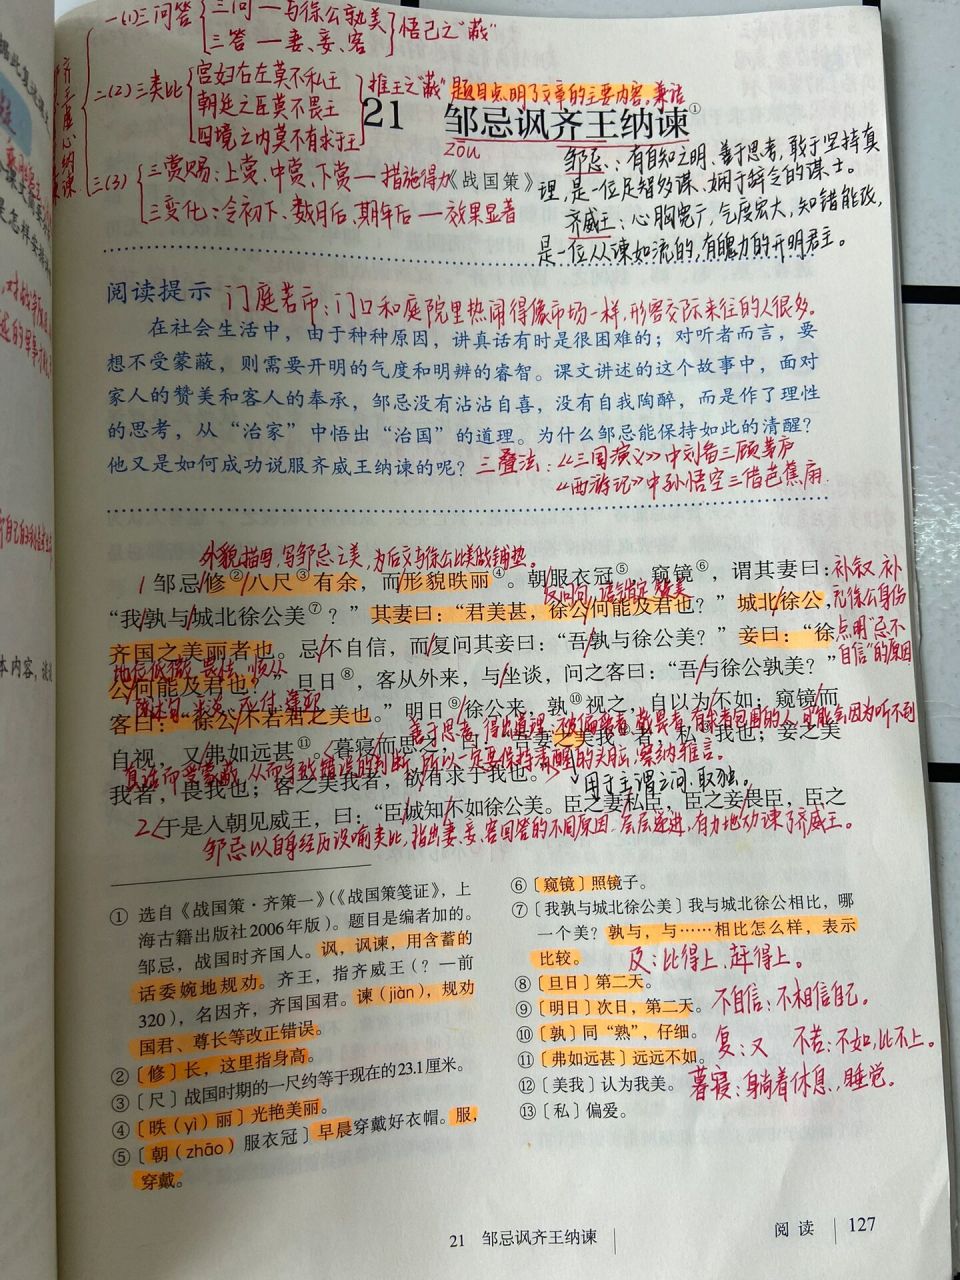 一(1)三问答 三问—与徐公孰美 悟己之"蔽"
三答—妻、妾、客
二(2)三类比 宫妇左右莫不私王 推王之"蔽"
朝廷之臣莫不畏王
四境之内莫不有求于王
三(3) 三赏赐:上赏、中赏、下赏—措施得力
三变化:令初下、数月后、期年后—效果显著
题目点明了文章的主要内容。
21 邹忌讽齐王纳谏①
zōu
《战国策》
邹忌:有自知之明、善于思考,敢于坚持真
理,是一位足智多谋、娴于辞令的谋士。
齐威王:心胸宽广,气度宏大,知错能改,
是一位从谏如流的,有魄力的开明君主。
阅读提示
门庭若市:门口和庭院里热闹得像市场一样,形容交际来往的人很多。
在社会生活中,由于种种原因,讲真话有时是很困难的;对听者而言,要
想不受蒙蔽,则需要开明的气度和明辨的睿智。课文讲述的这个故事中,面对
家人的赞美和客人的奉承,邹忌没有沾沾自喜,没有自我陶醉,而是作了理性
的思考,从“治家”中悟出“治国”的道理。为什么邹忌能保持如此的清醒?
他又是如何成功说服齐威王纳谏的呢?
三叠法:《三国演义》中刘备三顾茅庐
《西游记》中孙悟空三借芭蕉扇
外貌描写,写邹忌之美,为后文与徐公比美做铺垫
1 邹忌修②八尺③有余,而形貌昳丽④。朝服衣冠⑤,窥镜⑥,谓其妻曰:
补叙,补
“我孰与城北徐公美⑦?”其妻曰:“君美甚,徐公何能及君也?”城北徐公,
充徐公身份
齐国之美丽者也。忌不自信,而复问其妾曰:“吾孰与徐公美?”妾曰:“徐
点明"忌不
公何能及君也?”旦日⑧,客从外来,与坐谈,问之客曰:“吾与徐公孰美?”
自信"的原因
客曰:“徐公不若君之美也。”明日⑨徐公来,孰⑩视之,自以为不如;窥镜而
善于思考,得出道理
自视,又弗如远甚⑪。暮寝而思之,曰:“吾妻之美我⑫者,私⑬我也;妾之美
真话而受蒙蔽,从而导致错误的判断,所以一定要保持清醒的头脑,察纳雅言。
我者,畏我也;客之美我者,欲有求于我也。”
用于主谓之间,取独。
2 于是入朝见威王,曰:“臣诚知不如徐公美。臣之妻私臣,臣之妾畏臣,臣之
邹忌以自身经历设喻类比,指出妻、妾、客回答的不同原因,层层递进,有力地劝谏了齐威王。
① 选自《战国策·齐策一》(《战国策笺证》,上
海古籍出版社2006年版)。题目是编者加的。
邹忌,战国时齐国人。讽,讽谏,用含蓄的
话委婉地规劝。齐王,指齐威王(?—前
320),名因齐,齐国国君。谏(jiàn),规劝
国君、尊长等改正错误。
② 〔修〕长,这里指身高。
③ 〔尺〕战国时期的一尺约等于现在的23.1厘米。
④ 〔昳(yì)丽〕光艳美丽。
⑤ 〔朝(zhāo)服衣冠〕早晨穿戴好衣帽。服,
穿戴。
⑥ 〔窥镜〕照镜子。
⑦ 〔我孰与城北徐公美〕我与城北徐公相比,哪
一个美?孰与,与……相比怎么样,表示
比较。
及:比得上、赶得上。
⑧ 〔旦日〕第二天。
⑨ 〔明日〕次日,第二天。
不自信:不相信自己。
⑩ 〔孰〕同“熟”,仔细。
复:又 不若:不如,比不上。
⑪ 〔弗如远甚〕远远不如。
⑫ 〔美我〕认为我美。
暮寝:躺着休息,睡觉。
⑬ 〔私〕偏爱。
21 邹忌讽齐王纳谏
阅读 127